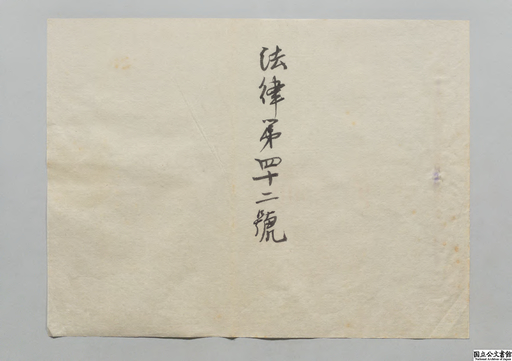 法律第四十二號
国立公文書館
National Archives of Japan